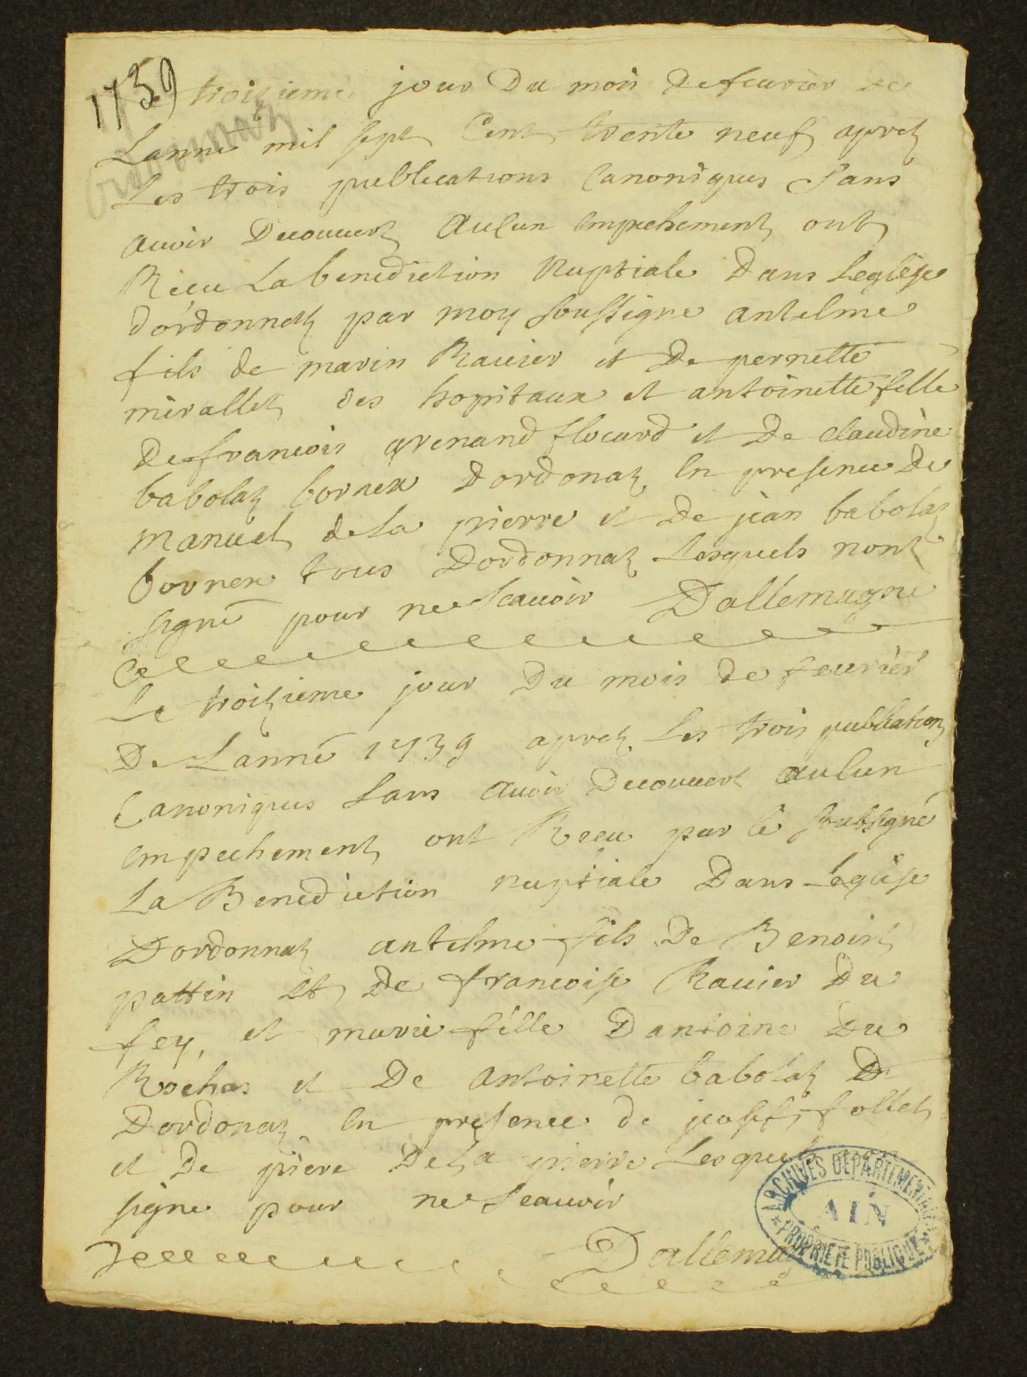 1739
troizieme jour Du mois De feurier de
Lanné mil sept Cent trente neuf apres
Les trois publications Canoniques Sans
avoir Decouuert AuCun empechement ont
Receu La benediction Nuptiale Dans Leglise
d'ordonnaz par moy soussigne antelme
fils de marin Rauier et De pernette
mirallet des hopitaux et antoinette fille
De francois grenand flocard et De claudine
babolaz bornex Dordonaz En presence De
manuel de la pierre et De jean babolaz
bornex tous Dordonnaz Lesquels nont
signé pour ne Scauoir Dallemagne
Le troizieme jour Du mois de feurier
De Lanné 1739 apres les trois publication
Canoniques Sans Auoir Decouuert aulun
empechement ont Receu par le soubsigné
La Benediction nuptiale Dans Leglise
Dordonnaz antelme fils De Benoist
pattin et De francoise Rauier Du
fey, et marie fille Dantoine Du
Rochas et De Antoinette babolaz
Dordonaz En presence de follet
et De piere Dela pierre Lesquels
signe pour ne Scauoir
Dallemagne
ARCHIVES DÉPARTEMENTALES
AIN
PROPRIÉTÉ PUBLIQUE